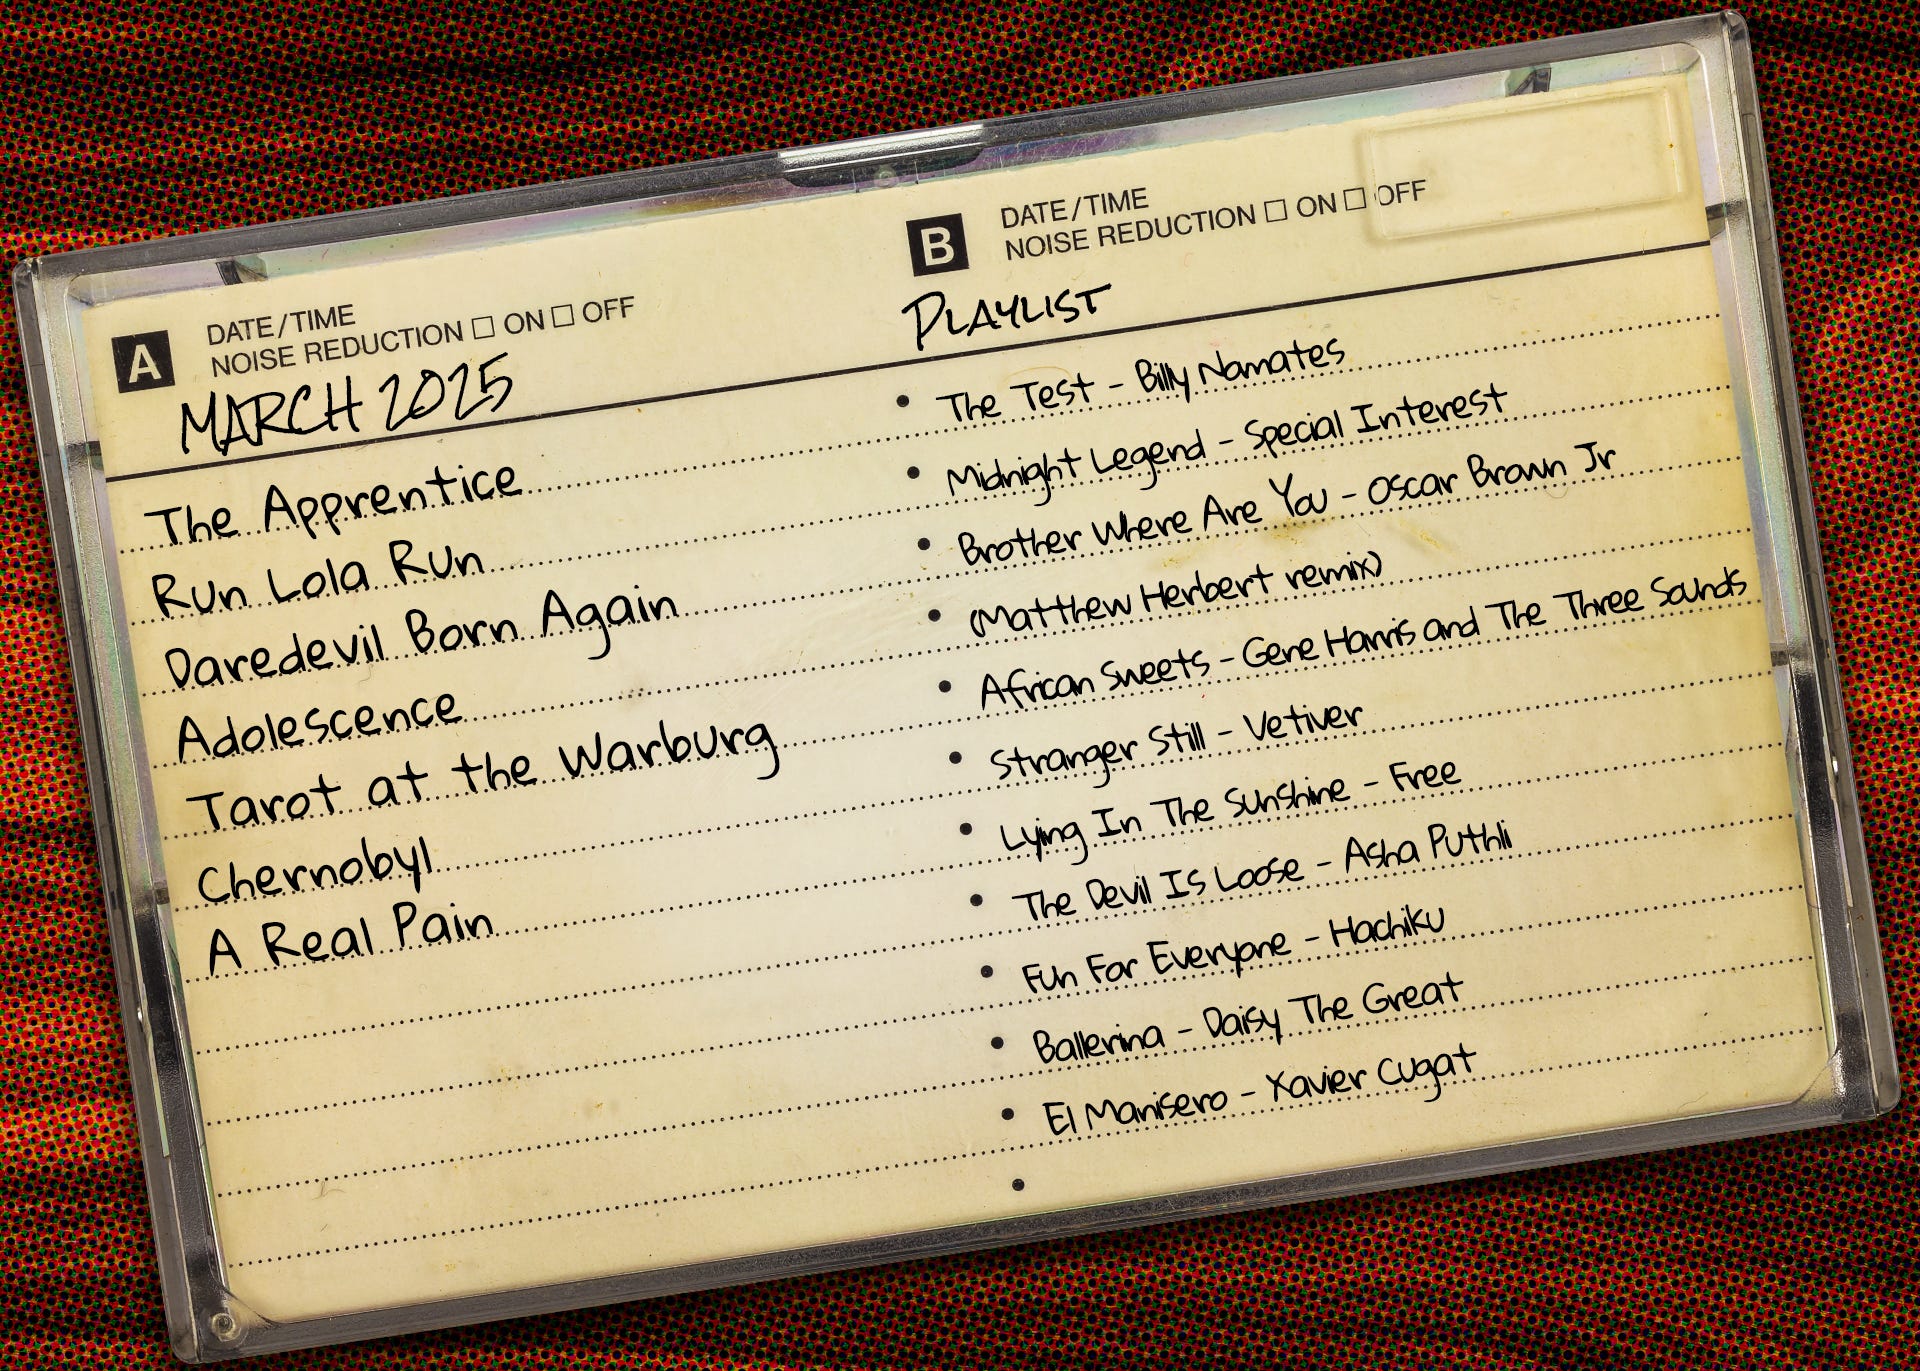 A
DATE/TIME
NOISE REDUCTION □ ON □ OFF
MARCH 2025
The Apprentice
Run Lola Run
Daredevil Born Again
Adolescence
Tarot at the Warburg
Chernobyl
A Real Pain
B
DATE/TIME
NOISE REDUCTION □ ON □ OFF
PLAYLIST
• The Test - Billy Nomates
• Midnight Legend - Special Interest
• Brother Where Are You - Oscar Brown Jr
• (Matthew Herbert remix)
• African Sweets - Gene Harris and The Three Sounds
• Stranger Still - Vetiver
• Lying In The Sunshine - Free
• The Devil Is Loose - Asha Puthli
• Fun For Everyone - Hachiku
• Ballerina - Daisy The Great
• El Manisero - Xavier Cugat